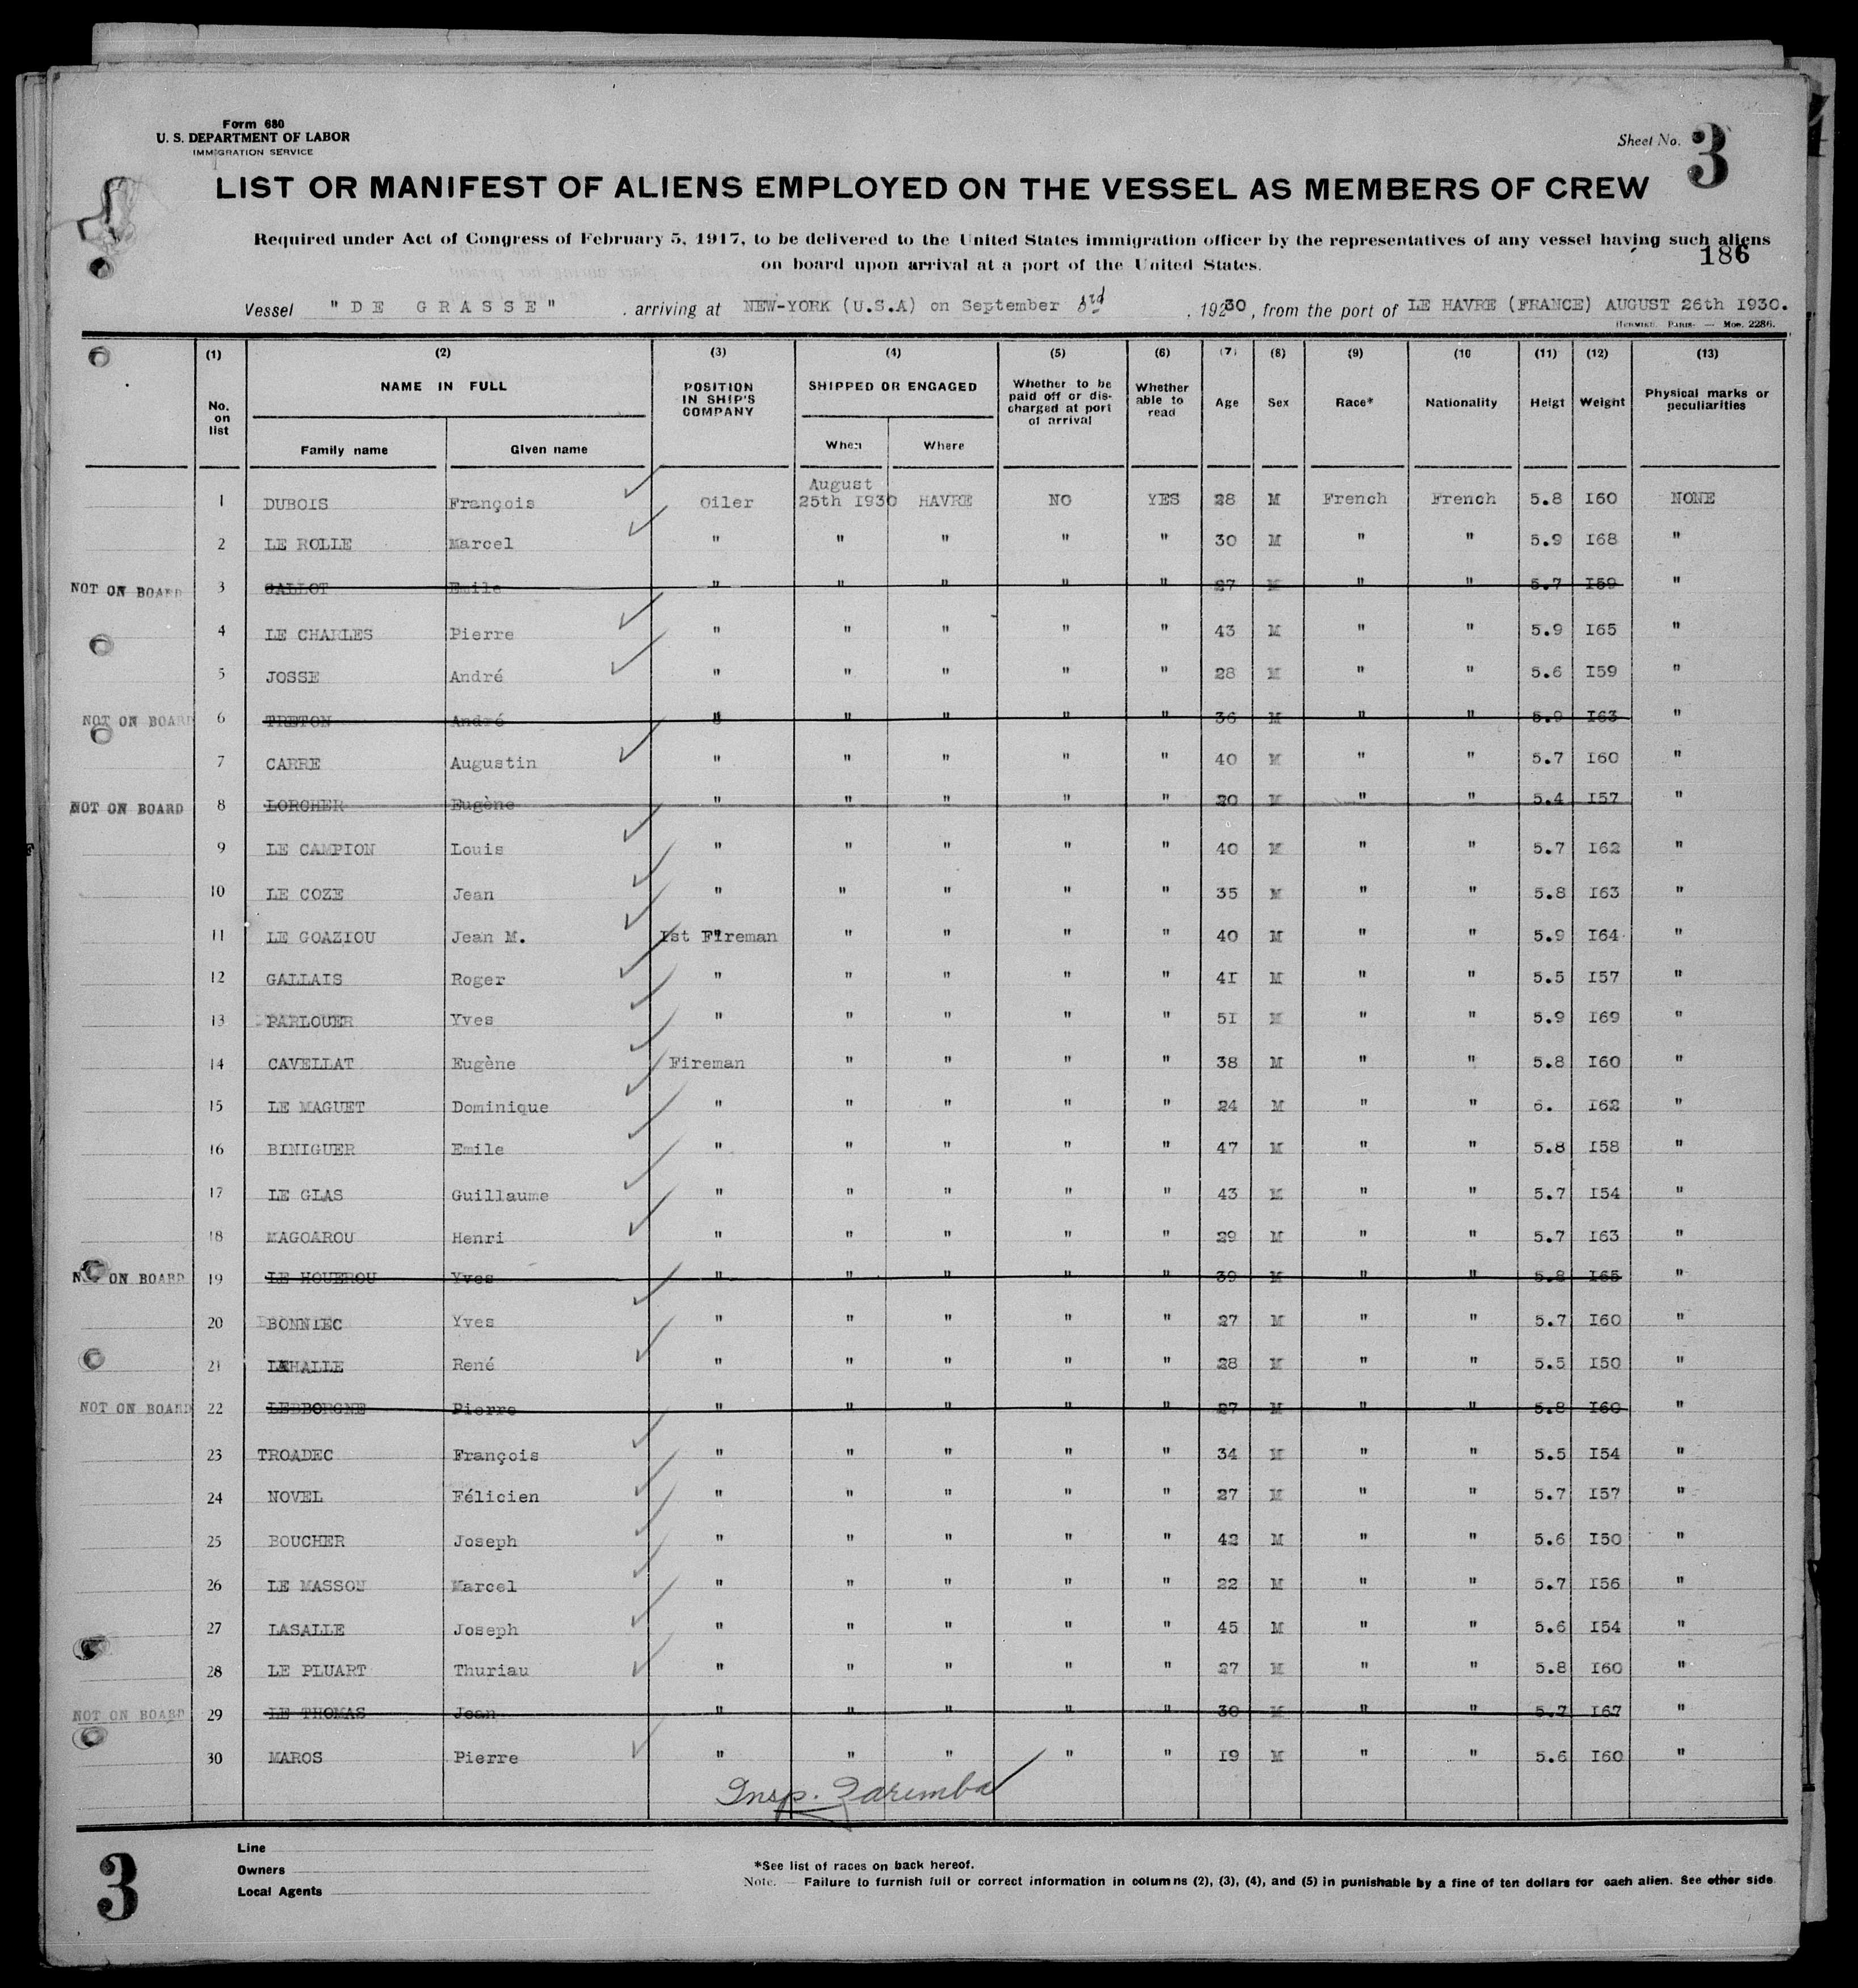 Form 680
U. S. DEPARTMENT OF LABOR
IMMIGRATION SERVICE
Sheet No. 3
LIST OR MANIFEST OF ALIENS EMPLOYED ON THE VESSEL AS MEMBERS OF CREW
Required under Act of Congress of February 5, 1917, to be delivered to the United States immigration officer by the representatives of any vessel having such aliens
on board upon arrival at a port of the United States.
186
Vessel "DE GRASSE" . arriving at NEW-YORK (U.S.A) on September 3rd , 19230, from the port of LE HAVRE (FRANCE) AUGUST 26th I930.
Paris- — Moe. 2286.
(1) (2) (3) (4) (5) (6) (7) (8) (9) (10 (11) (12) (13)
No. on list NAME IN FULL Family name Given name POSITION IN SHIP'S COMPANY SHIPPED OR ENGAGED When Where Whether to be paid off or dis-charged at port of arrival Whether able to read Age Sex Race* Nationality Heigt Weight Physical marks or peculiarities
1 DUBOIS François Oiler August 25th I930 HAVRE NO YES 28 M French French 5.8 I60 NONE
2 LE ROLLE Marcel " " " " " 30 M " " 5.9 I68 "
NOT ON BOARD 3 GALLOT Emile " " " " " 27 M " " 5.7 I59 "
4 LE CHARLES Pierre " " " " " 43 M " " 5.9 I65 "
5 JOSSE André " " " " " 28 M " " 5.6 I59 "
NOT ON BOARD 6 TRETON André " " " " " 36 M " " 5.9 I63 "
7 CARRE Augustin " " " " " 40 M " " 5.7 I60 "
NOT ON BOARD 8 LORCHER Eugène " " " " " 20 M " " 5.4 I57 "
9 LE CAMPION Louis " " " " " 40 M " " 5.7 I62 "
10 LE COZE Jean " " " " " 35 M " " 5.8 I63 "
11 LE GOAZIOU Jean M. Ist Fireman " " " " 40 M " " 5.9 I64 "
12 GALLAIS Roger " " " " " 4I M " " 5.5 I57 "
13 PARLOUER Yves " " " " " 5I M " " 5.9 I69 "
14 CAVELLAT Eugène Fireman " " " " 38 M " " 5.8 I60 "
15 LE MAGUET Dominique " " " " " 24 M " " 6. I62 "
16 BINIGUER Emile " " " " " 47 M " " 5.8 I58 "
17 LE GLAS Guillaume " " " " " 43 M " " 5.7 I54 "
18 MAGOAROU Henri " " " " " 29 M " " 5.7 I63 "
NOT ON BOARD 19 LE HOUEROU Yves " " " " " 39 M " " 5.8 I65 "
20 BONNIEC Yves " " " " " 27 M " " 5.7 I60 "
21 LAHALLE René " " " " " 28 M " " 5.5 I50 "
NOT ON BOARD 22 LEBBORGNE Pierre " " " " " 27 M " " 5.8 I60 "
23 TROADEC François " " " " " 34 M " " 5.5 I54 "
24 NOVEL Félicien " " " " " 27 M " " 5.7 I57 "
25 BOUCHER Joseph " " " " " 42 M " " 5.6 I50 "
26 LE MASSON Marcel " " " " " 22 M " " 5.7 I56 "
27 LASALLE Joseph " " " " " 45 M " " 5.6 I54 "
28 LE PLUART Thuriau " " " " " 27 M " " 5.8 I60 "
NOT ON BOARD 29 LE THOMAS Jean " " " " " 30 M " " 5.7 I67 "
30 MAROS Pierre " " " " " I9 M " " 5.6 I60 "
Insp. Zaremba
3
Line
Owners
Local Agents
*See list of races on back hereof.
Note. — Failure to furnish full or correct information in columns (2), (3), (4), and (5) in punishable by a fine of ten dollars for each alien. See other side.